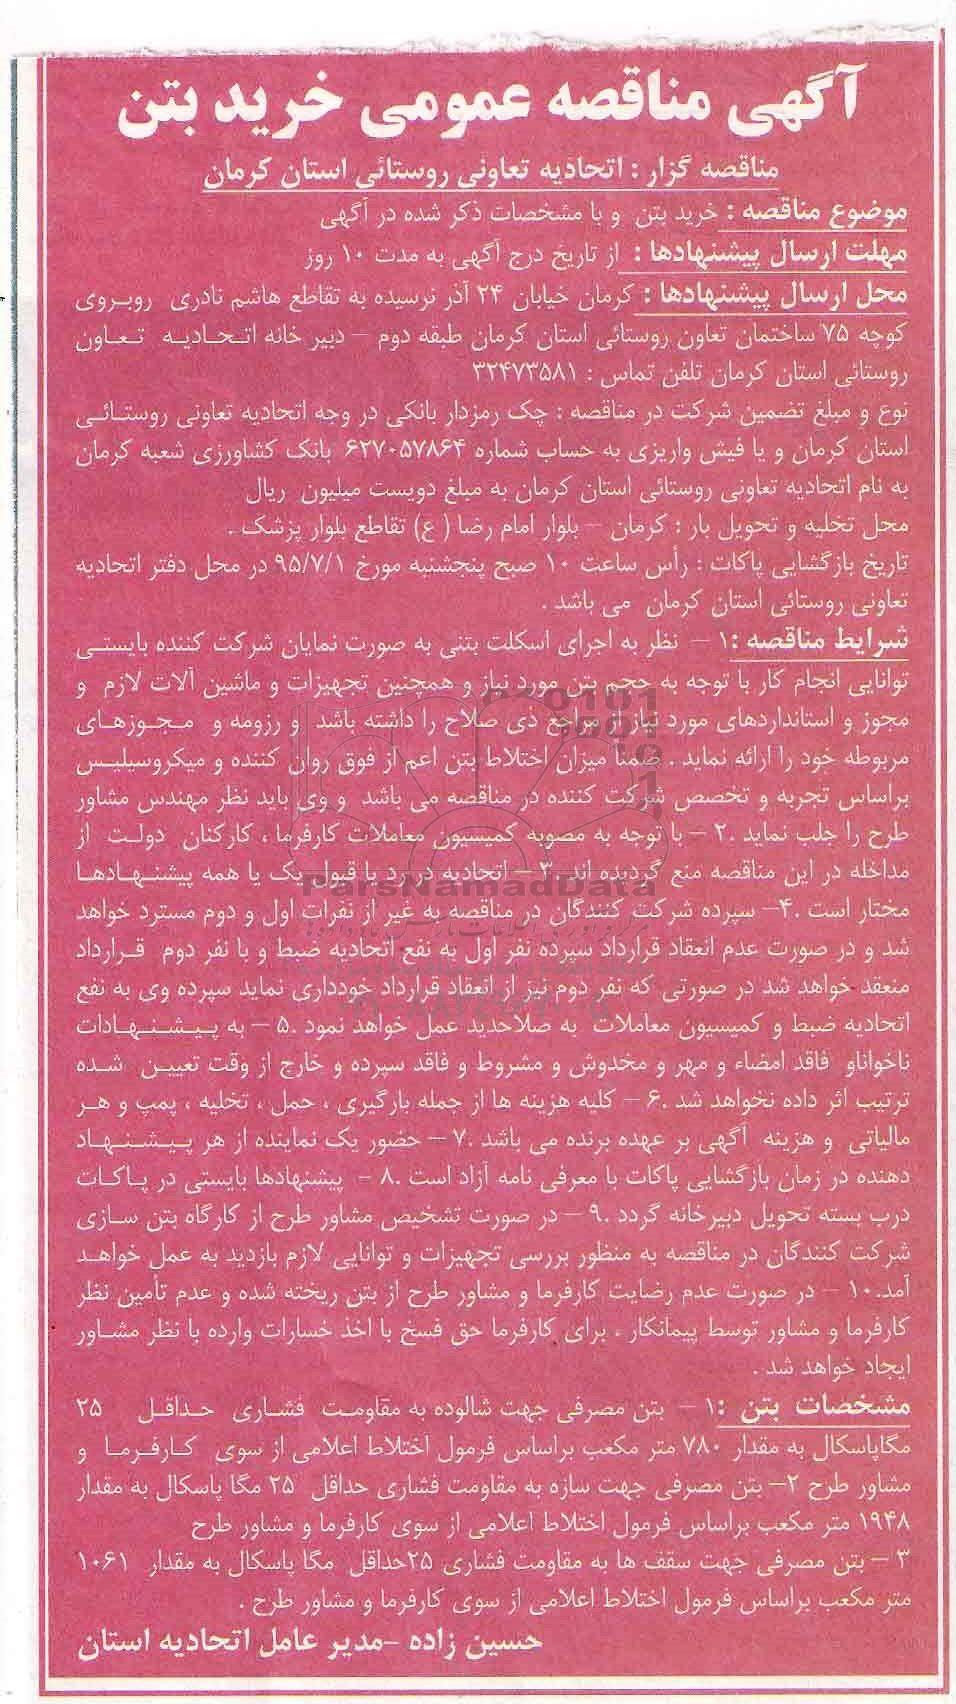 آگهی مناقصه عمومی خرید بتن
مناقصه گزار : اتحادیه تعاونی روستائی استان کرمان
موضوع مناقصه : خرید بتن و با مشخصات ذکر شده در آگهی
مهلت ارسال پیشنهادها : از تاریخ درج آگهی به مدت ۱۰ روز
محل ارسال پیشنهادها : کرمان خیابان ۲۴ آذر نرسیده به تقاطع هاشم نادری روبروی
کوچه ۷۵ ساختمان تعاون روستائی استان کرمان طبقه دوم – دبیر خانه اتحادیه تعاون
روستائی استان کرمان تلفن تماس : ۳۲۴۷۳۵۸۱
نوع و مبلغ تضمین شرکت در مناقصه : چک رمزدار بانکی در وجه اتحادیه تعاونی روستائی
استان کرمان و یا فیش واریزی به حساب شماره ۶۲۷۰۵۷۸۶۴ بانک کشاورزی شعبه کرمان
به نام اتحادیه تعاونی روستائی استان کرمان به مبلغ دویست میلیون ریال
محل تخلیه و تحویل بار : کرمان – بلوار امام رضا ( ع) تقاطع بلوار پزشک .
تاریخ بازگشایی پاکات : رأس ساعت ۱۰ صبح پنجشنبه مورخ ۹۵/۷/۱ در محل دفتر اتحادیه
تعاونی روستائی استان کرمان می باشد .
شرایط مناقصه :۱ – نظر به اجرای اسکلت بتنی به صورت نمایان شرکت کننده بایستی
توانایی انجام کار با توجه به حجم بتن مورد نیاز و همچنین تجهیزات و ماشین آلات لازم و
مجوز و استانداردهای مورد نیاز از مراجع ذی صلاح را داشته باشد و رزومه و مجوزهای
مربوطه خود را ارائه نماید . ضمناً میزان اختلاط بتن اعم از فوق روان کننده و میکروسیلیس
براساس تجربه و تخصص شرکت کننده در مناقصه می باشد و وی باید نظر مهندس مشاور
طرح را جلب نماید .۲ – با توجه به مصوبه کمیسیون معاملات کارفرما ، کارکنان دولت از
مداخله در این مناقصه منع گردیده اند.۳– اتحادیه در رد یا قبول یک یا همه پیشنهادها
مختار است .۴– سپرده شرکت کنندگان در مناقصه به غیر از نفرات اول و دوم مسترد خواهد
شد و در صورت عدم انعقاد قرارداد سپرده نفر اول به نفع اتحادیه ضبط و با نفر دوم قرارداد
منعقد خواهد شد در صورتی که نفر دوم نیز از انعقاد قرارداد خودداری نماید سپرده وی به نفع
اتحادیه ضبط و کمیسیون معاملات به صلاحدید عمل خواهد نمود .۵ – به پیشنهادات
ناخواناو فاقد امضاء و مهر و مخدوش و مشروط و فاقد سپرده و خارج از وقت تعیین شده
ترتیب اثر داده نخواهد شد .۶ – کلیه هزینه ها از جمله بارگیری ، حمل ، تخلیه ، پمپ و هر
مالیاتی و هزینه آگهی بر عهده برنده می باشد .۷ – حضور یک نماینده از هر پیشنهاد
دهنده در زمان بازگشایی پاکات با معرفی نامه آزاد است .۸ – پیشنهادها بایستی در پاکات
درب بسته تحویل دبیرخانه گردد .۹ – در صورت تشخیص مشاور طرح از کارگاه بتن سازی
شرکت کنندگان در مناقصه به منظور بررسی تجهیزات و توانایی لازم بازدید به عمل خواهد
آمد.۱۰ – در صورت عدم رضایت کارفرما و مشاور طرح از بتن ریخته شده و عدم تأمین نظر
کارفرما و مشاور توسط پیمانکار ، برای کارفرما حق فسخ با اخذ خسارات وارده با نظر مشاور
ایجاد خواهد شد .
مشخصات بتن :۱ – بتن مصرفی جهت شالوده به مقاومت فشاری حداقل ۲۵
مگاپاسکال به مقدار ۷۸۰ متر مکعب براساس فرمول اختلاط اعلامی از سوی کارفرما و
مشاور طرح ۲– بتن مصرفی جهت سازه به مقاومت فشاری حداقل ۲۵ مگا پاسکال به مقدار
۱۹۴۸ متر مکعب براساس فرمول اختلاط اعلامی از سوی کارفرما و مشاور طرح
۳ – بتن مصرفی جهت سقف ها به مقاومت فشاری ۲۵حداقل مگا پاسکال به مقدار ۱۰۶۱
متر مکعب براساس فرمول اختلاط اعلامی از سوی کارفرما و مشاور طرح .
حسین زاده –مدیر عامل اتحادیه استان
ParsNamadData